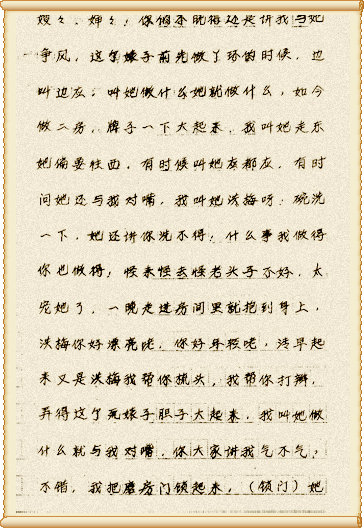 嫂々、婶々；你们还说得还是讲我与她
争风，这个婊子前先做丫环的时候，边
叫边应；叫她做什么她就做什么，如今
做二房，牌子一下大起来，我叫她走东
她偏要往西，有时候叫她应都应，有时
问她还与我对嘴，我叫她淡梅呀：碗洗
一下，她还讲你洗不得；什么事我做得
你也做得；怪来怪去怪老头子不好，太
宠她了，一晚走进房间里就抱到身上，
淡梅你好漂亮咾，你好年轻咾，清早起
来又是淡梅我帮你梳头，我帮你打辫，
弄得这个死婊子胆子大起来，我叫她做
什么就与我对嘴，你大家讲我气不气；
不错，我把磨房门锁起来，（锁门）她